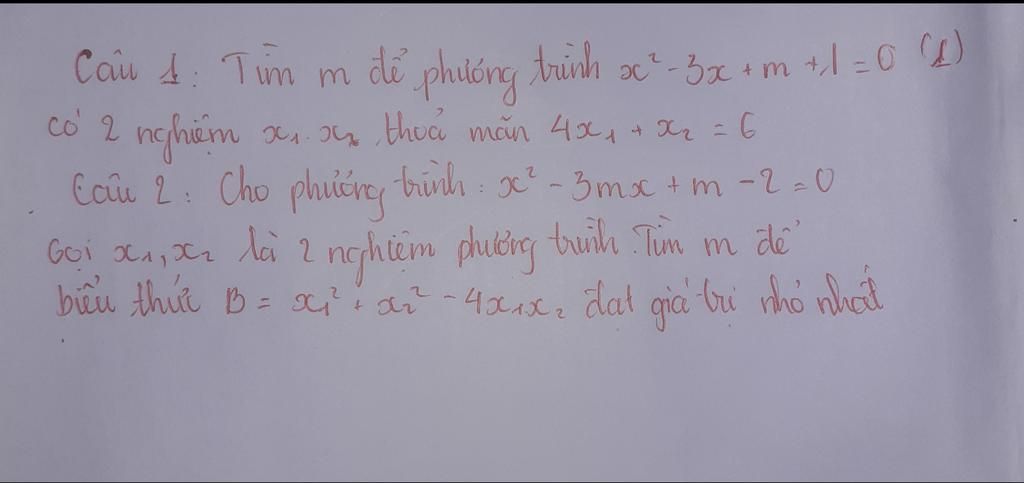 Câu 1: Tìm m để phương trình x² - 3x + m + 1 = 0 (1)
có 2 nghiệm x₁. x₂ thoả mãn 4x₁ + x₂ = 6
Câu 2: Cho phương trình: x² - 3mx + m - 2 = 0
Gọi x₁, x₂ là 2 nghiệm phương trình. Tìm m để
biểu thức B = x₁² + x₂² - 4x₁x₂ đạt giá trị nhỏ nhất